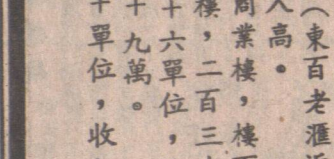 （東百老滙
人高。
商業樓，樓
樓，二百三
十六單位，
十九萬。
十單位，收